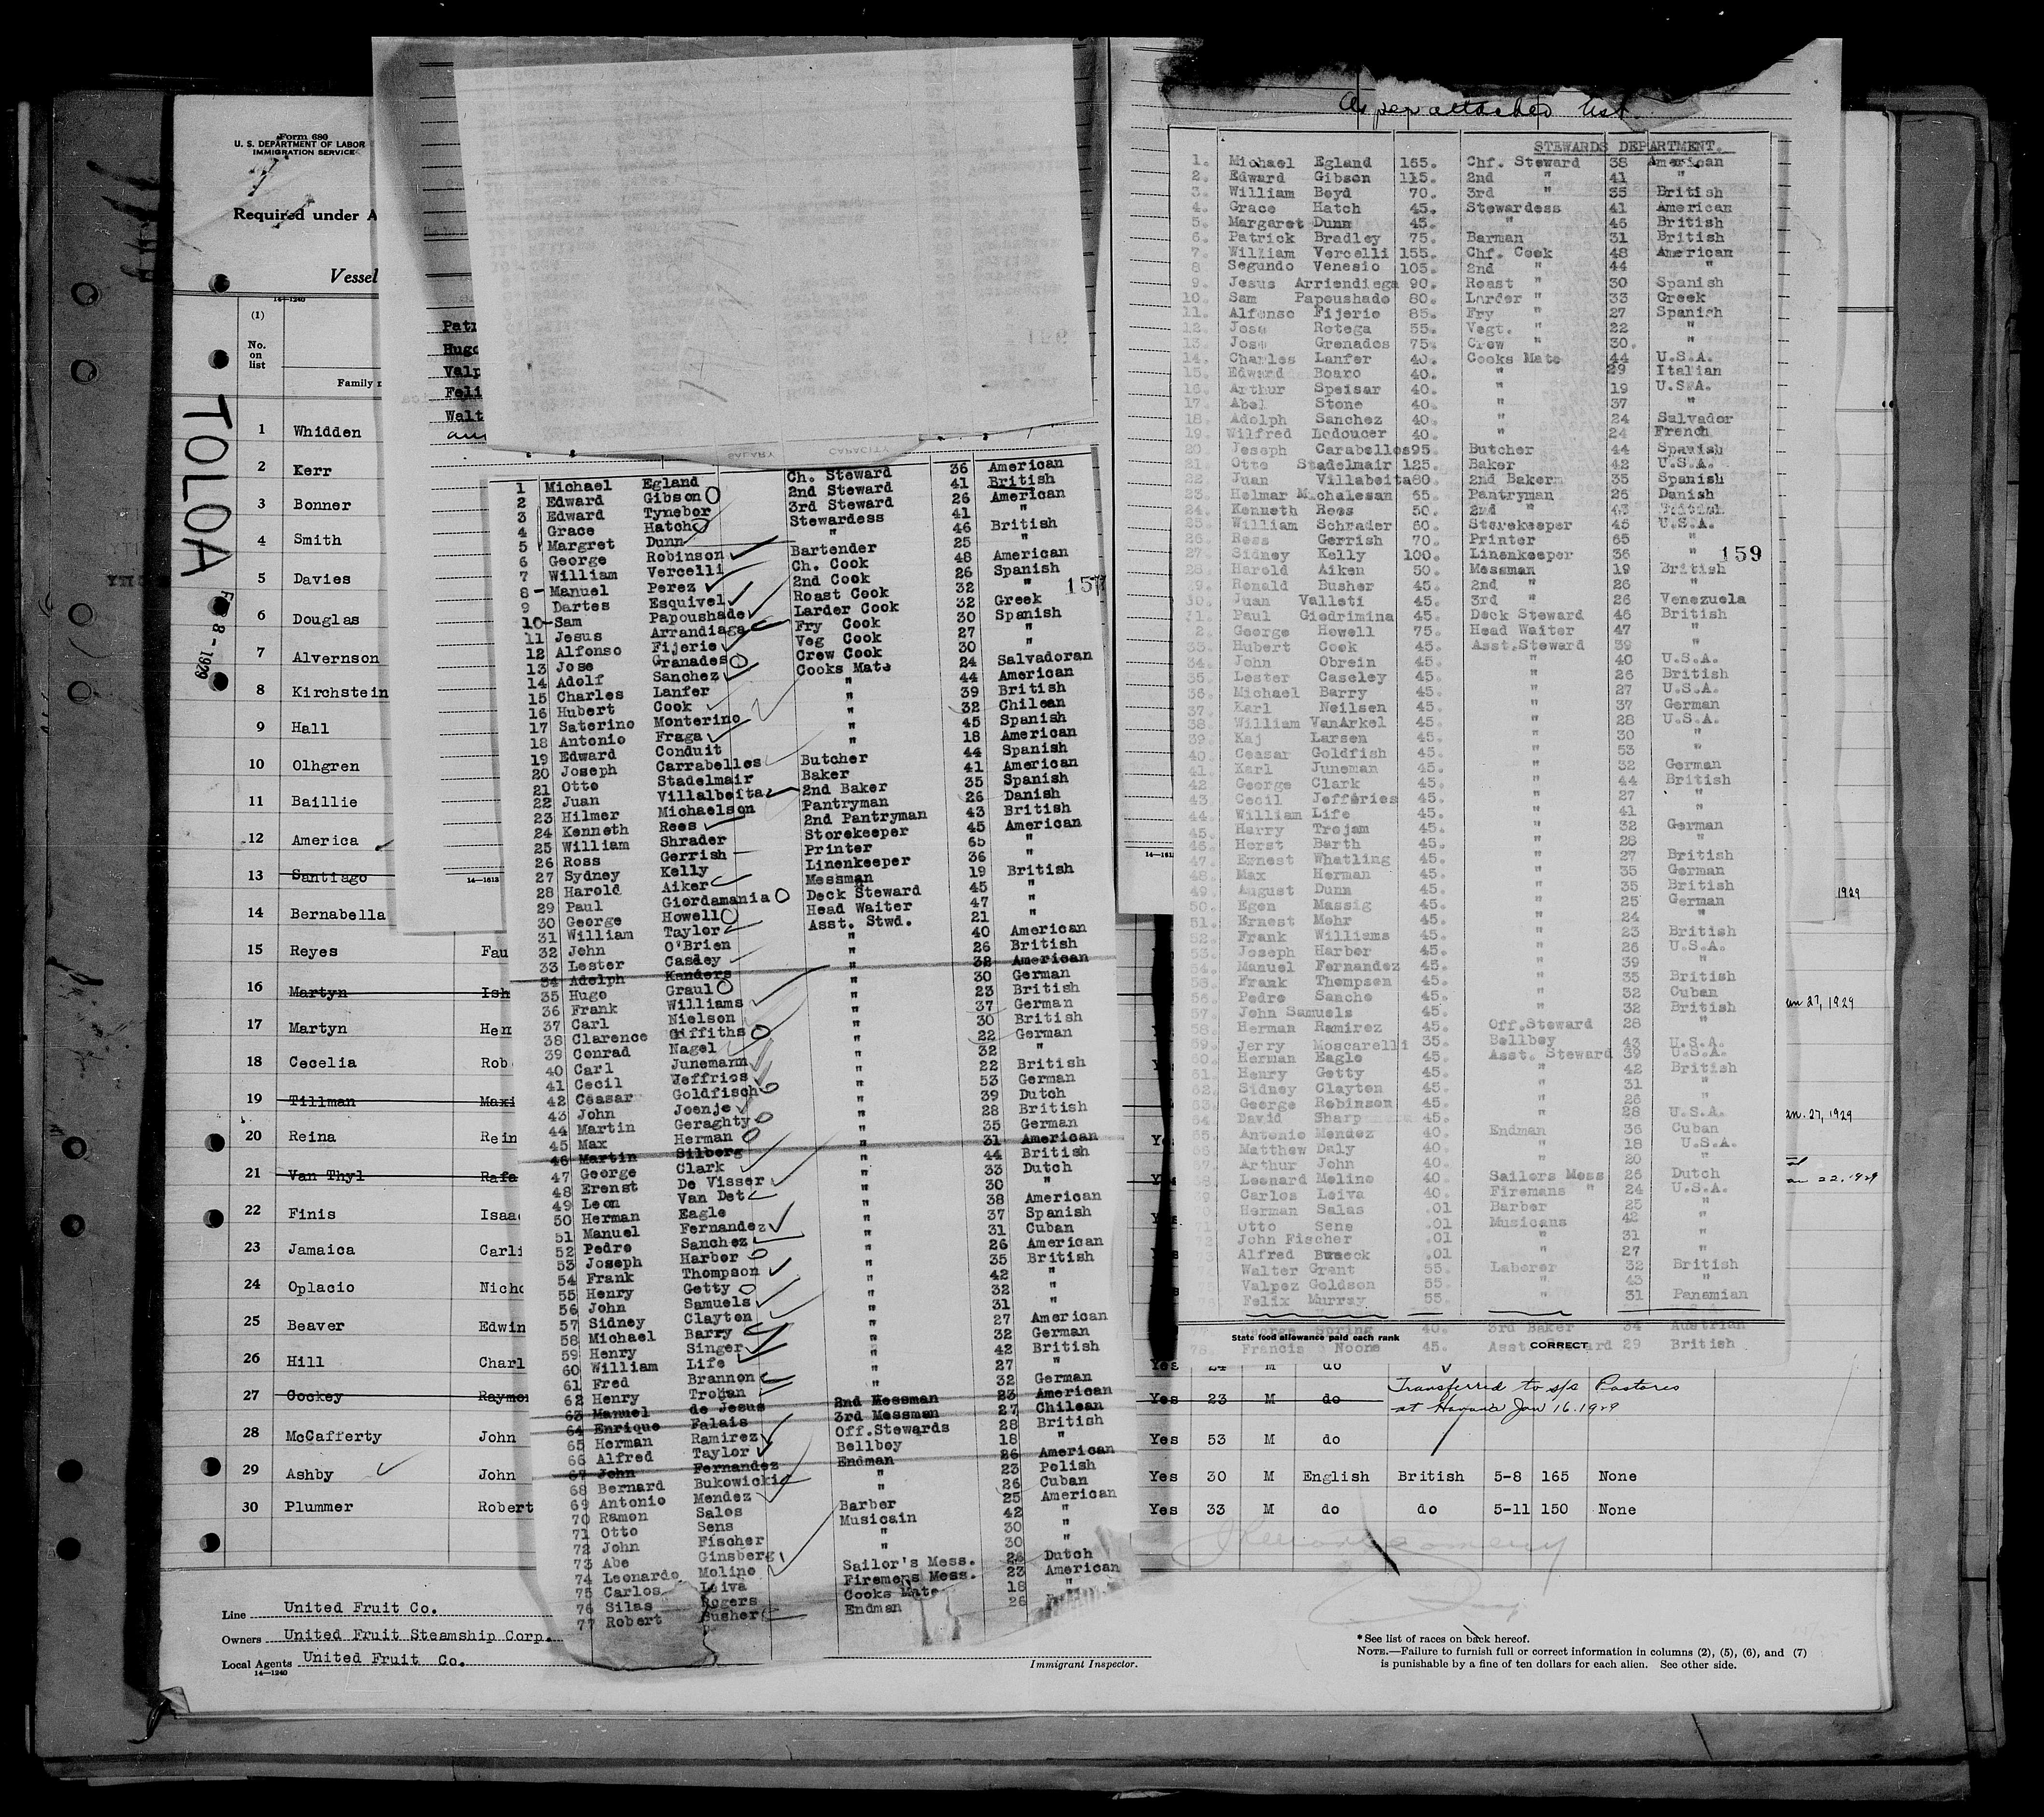 Form 680
U. S. DEPARTMENT OF LABOR
IMMIGRATION SERVICE
Required under A
Vessel
14—1240
(1)
No.
on
list
Family
TOLOA
8-1929
1 Whidden
2 Kerr
3 Bonner
4 Smith
5 Davies
6 Douglas
7 Alvernson
8 Kirchstein
9 Hall
10 Olhgren
11 Baillie
12 America
13 Santiago
14 Bernabella
15 Reyes Fau
16 Martyn Ish
17 Martyn Hen
18 Cecelia Rob
19 Tillman Maxi
20 Reina Rein
21 Van Thyl Rafa
22 Finis Isaa
23 Jamaica Carli
24 Oplacio Nicho
25 Beaver Edwin
26 Hill Charl
27 Cockey Raymo
28 McCafferty John
29 Ashby John
30 Plummer Robert
Line United Fruit Co.
Owners United Fruit Steamship Corp.
Local Agents United Fruit Co.
14—1240
Immigrant Inspector.
Pat
Hugo
Valp
Feli
Walt
14—1613
SALARY CAPACITY
1 Michael Egland Ch. Steward 36 American
2 Edward Gibson 2nd Steward 41 British
3 Edward Tynebor 3rd Steward 26 American
4 Grace Hatch Stewardess 41 "
5 Margret Dunn " 46 British
6 George Robinson Bartender 25 "
7 William Vercelli Ch. Cook 48 American
8 Manuel Perez 2nd Cook 26 Spanish
9 Dartes Esquivel Roast Cook 32 "
10 Sam Papoushade Larder Cook 32 Greek
11 Jesus Arrandiaga Fry Cook 30 Spanish
12 Alfonso Fijerie Veg Cook 27 "
13 Jose Granades Crew Cook 30 "
14 Adolf Sanchez Cooks Mate 24 Salvadoran
15 Charles Lanfer " 44 American
16 Hubert Cook " 39 British
17 Saterino Monterino " 32 Chilean
18 Antonio Fraga " 45 Spanish
19 Edward Conduit " 18 American
20 Joseph Carrabelles Butcher 44 Spanish
21 Otto Stadelmair Baker 41 American
22 Juan Villalbeita 2nd Baker 35 Spanish
23 Hilmer Michaelson Pantryman 26 Danish
24 Kenneth Rees 2nd Pantryman 43 British
25 William Shrader Storekeeper 45 American
26 Ross Gerrish Printer 65 "
27 Sydney Kelly Linenkeeper 36 "
28 Harold Aiker Messman 19 British
29 Paul Giordamania Deck Steward 45 "
30 George Howell Head Waiter 47 "
31 William Taylor Asst. Stwd. 21 "
32 John O'Brien " 40 American
33 Lester Casley " 26 British
34 Adolph Kanders " 32 American
35 Hugo Graul " 30 German
36 Frank Williams " 23 British
37 Carl Nielson " 37 German
38 Clarence Griffiths " 30 British
39 Conrad Nagel " 22 German
40 Carl Junemann " 32 "
41 Cecil Jeffries " 22 British
42 Ceasar Goldfisch " 53 German
43 John Joenje " 39 Dutch
44 Martin Geraghty " 28 British
45 Max Herman " 35 German
46 Martin Silberg " 31 American
47 George Clark " 44 British
48 Erenst De Visser " 33 Dutch
49 Leon Van Det " 30 "
50 Herman Eagle " 38 American
51 Manuel Fernandez " 37 Spanish
52 Pedro Sanchez " 31 Cuban
53 Joseph Harbor " 26 American
54 Frank Thompson " 35 British
55 Henry Getty " 42 "
56 John Samuels " 32 "
57 Sidney Clayton " 31 "
58 Michael Barry " 27 American
59 Henry Singer " 32 German
60 William Life " 42 British
61 Fred Brannon " 27 "
62 Henry Trojan " 32 German
63 Manuel de Jesus 2nd Messman 23 American
64 Enrique Falais 3rd Messman 27 Chilean
65 Herman Ramirez Off.Stewards 28 British
66 Alfred Taylor Bellboy 18 "
67 John Fernandez Endman 26 American
68 Bernard Bukowicki " 23 Polish
69 Antonio Mendez " 26 Cuban
70 Ramon Salos Barber 25 American
71 Otto Sens Musicain 42 "
72 John Fischer " 30 "
73 Abe Ginsberg " 30 "
74 Leonardo Molino Sailor's Mess. 26 Dutch
75 Carlos Leiva Firemens Mess. 23 American
76 Silas Rogers Cooks Mate 18 "
77 Robert Busher Endman 26
157
As per attached list.
STEWARDS DEPARTMENT.
1. Michael Egland 165. Chf. Steward 38 American
2. Edward Gibson 115. 2nd " 41 "
3. William Boyd 70. 3rd " 35 British
4. Grace Hatch 45. Stewardess 41 American
5. Margaret Dunn 45. " 46 British
6. Patrick Bradley 75. Barman 31 British
7. William Vercelli 155. Chf. Cook 48 American
8 Segundo Venesio 105. 2nd " 44 "
9. Jesus Arriendiega 90. Roast " 30 Spanish
10. Sam Papoushado 80. Larder " 33 Greek
11. Alfonso Fijerie 85. Fry " 27 Spanish
12. Jose Rotega 55. Vegt. " 22 "
13. Jose Grenados 75. Crew " 30. "
14. Charles Lanfer 40. Cooks Mate 44 U.S.A.
15. Edward Boaro 40. " 29 Italian
16. Arthur Speisar 40. " 19 U.S.A.
17. Abel Stone 40. " 37 "
18. Adolph Sanchez 40. " 24 Salvador
19. Wilfred Ledoucer 40. " 24 French
20. Joseph Carabellos 95. Butcher 44 Spanish
21. Otto Stadelmair 125. Baker 42 U.S.A.
22. Juan Villabeita 80. 2nd Baker 35 Spanish
23. Helmar Michalesan 65. Pantryman 26 Danish
24. Kenneth Rees 50. 2nd " 43 British
25. William Schrader 60. Storekeeper 45 U.S.A.
26. Ross Gerrish 70. Printer 65 "
27. Sidney Kelly 100. Linenkeeper 36 "
28. Harold Aiken 50. Messman 19 British
29. Ronald Busher 45. 2nd " 26 "
30. Juan Valleti 45. 3rd " 26 Venezuela
31. Paul Giedrimina 45. Deck Steward 46 British
2. George Howell 75. Head Waiter 47 "
33. Hubert Cook 45. Asst.Steward 39 "
34. John Obrein 45. " 40 U.S.A.
35. Lester Caseley 45. " 26 British
36. Michael Barry 45. " 27 U.S.A.
37. Karl Neilsen 45. " 37 German
38. William VanArkel 45. " 28 U.S.A.
39. Kaj Larsen 45. " 30 "
40. Ceasar Goldfish 45. " 53 "
41. Karl Juneman 45. " 32 German
42. George Clark 45. " 44 British
43. Cecil Jefferies 45. " 27 "
44. William Life 45. " 41 "
45. Harry Trojam 45. " 32 German
46. Horst Barth 45. " 28 "
47. Ernest Whatling 45. " 27 British
48. Max Herman 45. " 35 German
49. August Dunn 45. " 35 British
50. Egon Massig 45. " 25 German
51. Ernest Mohr 45. " 24 "
52. Frank Williams 45. " 23 British
53. Joseph Harbor 45. " 26 U.S.A.
54. Manuel Fernandez 45. " 39 "
55. Frank Thompson 45. " 35 British
56. Pedro Sancho 45. " 32 Cuban
57. John Samuels 45. " 32 British
58. Herman Ramirez 45. Off.Steward 28 "
59. Jerry Moscarelli 35. Bellboy 43 U.S.A.
60. Herman Eagle 45. Asst. Steward 39 U.S.A.
61. Henry Getty 45. " 42 British
62. Sidney Clayton 45. " 31 "
63. George Robinson 45. " 26 "
64. David Sharp 45. " 28 U.S.A.
65. Antonio Mendez 40. Endman 36 Cuban
66. Matthew Daly 40. " 18 U.S.A.
67. Arthur John 40. " 20 "
68. Leonard Moline 40. Sailors Mess 26 Dutch
69. Carlos Leiva 40. Firemans " 24 U.S.A.
Herman Salas .01 Barber 25 "
71 Otto Sens .01 Musicans 42 "
72 John Fischer .01 " 31 "
Alfred Bwaeck .01 " 27 "
Walter Grant 55. Laborer 32 British
Valpez Goldson 55. " 43 "
Felix Murray 55. " 31 Panamian
George Spring 40. 3rd Baker 34 Austrian
78. Francis Noone 45. Asst. Steward 29 British
State food allowance paid each rank
CORRECT
159
14—1613
1929
an 27, 1929
an. 27, 1929
22, 1929
Yes 24 M do
Yes 23 M do Transferred to s/s Pastores
at Havana Jan 16. 1929
Yes 53 M do
Yes 30 M English British 5-8 165 None
Yes 33 M do do 5-11 150 None
*See list of races on back hereof.
NOTE.—Failure to furnish full or correct information in columns (2), (5), (6), and (7)
is punishable by a fine of ten dollars for each alien. See other side.